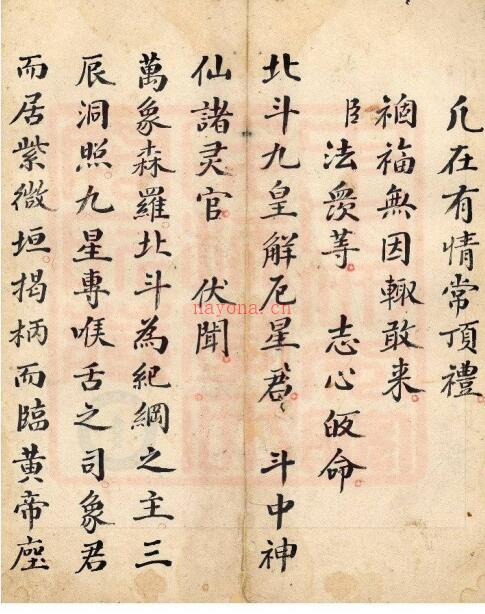 凡在有情常頂禮
禍福無因輙敢来
臣法衆等　志心皈命
北斗九皇解厄星君　斗中神
仙諸灵官　伏聞
萬象森羅北斗為紀綱之主三
辰洞照九星專喉舌之司象君
而居紫微垣揭柄而臨黄帝座
nayona.cn